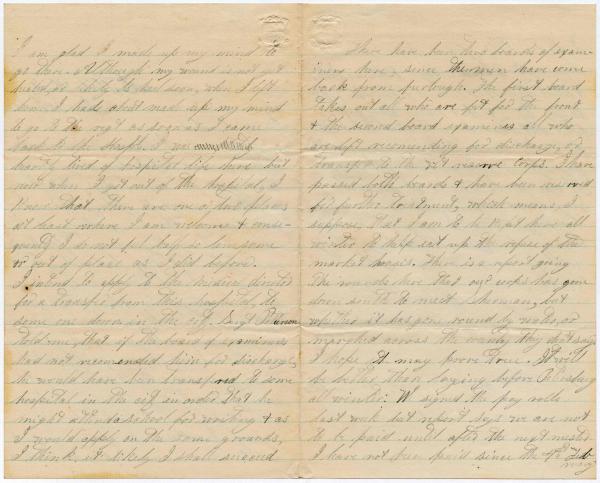 I am glad I made up my mind to
go there. Although my wound is not yet
healed, or likely to heal soon, when I left
home I had about made up my mind
to go to the regt as soon as I came
back to the hospt. I was
heartily tired of hospital life here but
now when I get out of the hospital, I
know that there are one or two places
at least where I am welcome & conse-
quent I do not feel lonesome
or out of place as I did before.
I intend to apply to the medical director
for a transfer from this hospital, to
some one down in the city. Sergt
told me, that if the board of examiners
had not recomended him for discharge,
he would have been transfered to some
hospital in the city in order that he
might attend a school for writing & as
I would apply on the same grounds,
I think it likely I shall succeed
There have been two boards of exam-
iners here, since the men have come
back from furlough. The first board
takes out all who are fit for the front
& the second board examines all who
are left recomending for discharge, or
transfer to the vet reserve corps. I have
passed both boards & have been reserved
for further treatment, which means, I
suppose, that I am to be kept here all
winter to help eat up the refuse of the
market houses. There is a report going
the rounds here that our corps has gone
down south to meet Sherman, but
whether it has gone round by water, or
marched across the country, they do not say
I hope it may prove true. It will
be better than laying before Petersburg
all winter. We signed the pay rolls
last week but report says we are not
to be paid until after the next muster
I have not been paid since the 4th Feb